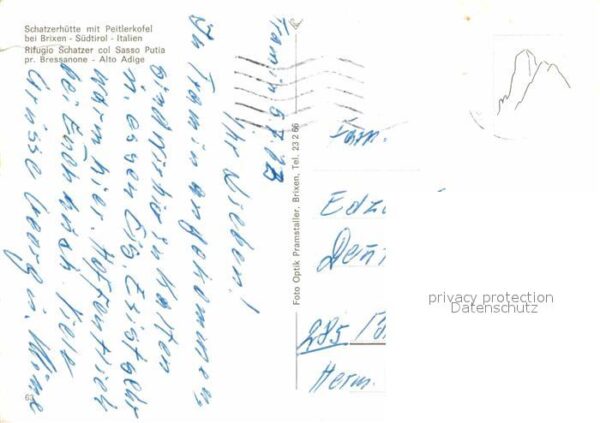 Schatzerhütte mit Peitlerkofel
bei Brixen - Südtirol - Italien
Rifugio Schatzer col Sasso Putia
pr. Bressanone - Alto Adige
Tramin 5.7.83
Ihr Lieben!
In Tramin angekommen
sind wir hier
u. essen Eis. Es ist sehr
warm hier. Hoffentlich
bei Euch auch. Viele
Grüsse Georg u.
Foto Optik Pramstaller, Brixen, Tel. 23 2 66
Fam.
285
Herm.
63
privacy protection
Datenschutz